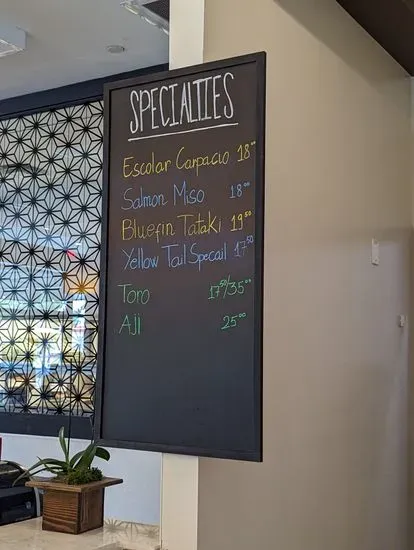 SPECIALTIES
Escolar Carpacio 18⁰⁰
Salmon Miso 18⁰⁰
Bluefin Tataki 19⁵⁰
Yellow Tail Specail 17⁵⁰
Toro 17⁵⁰/35⁰⁰
Aji 25⁰⁰